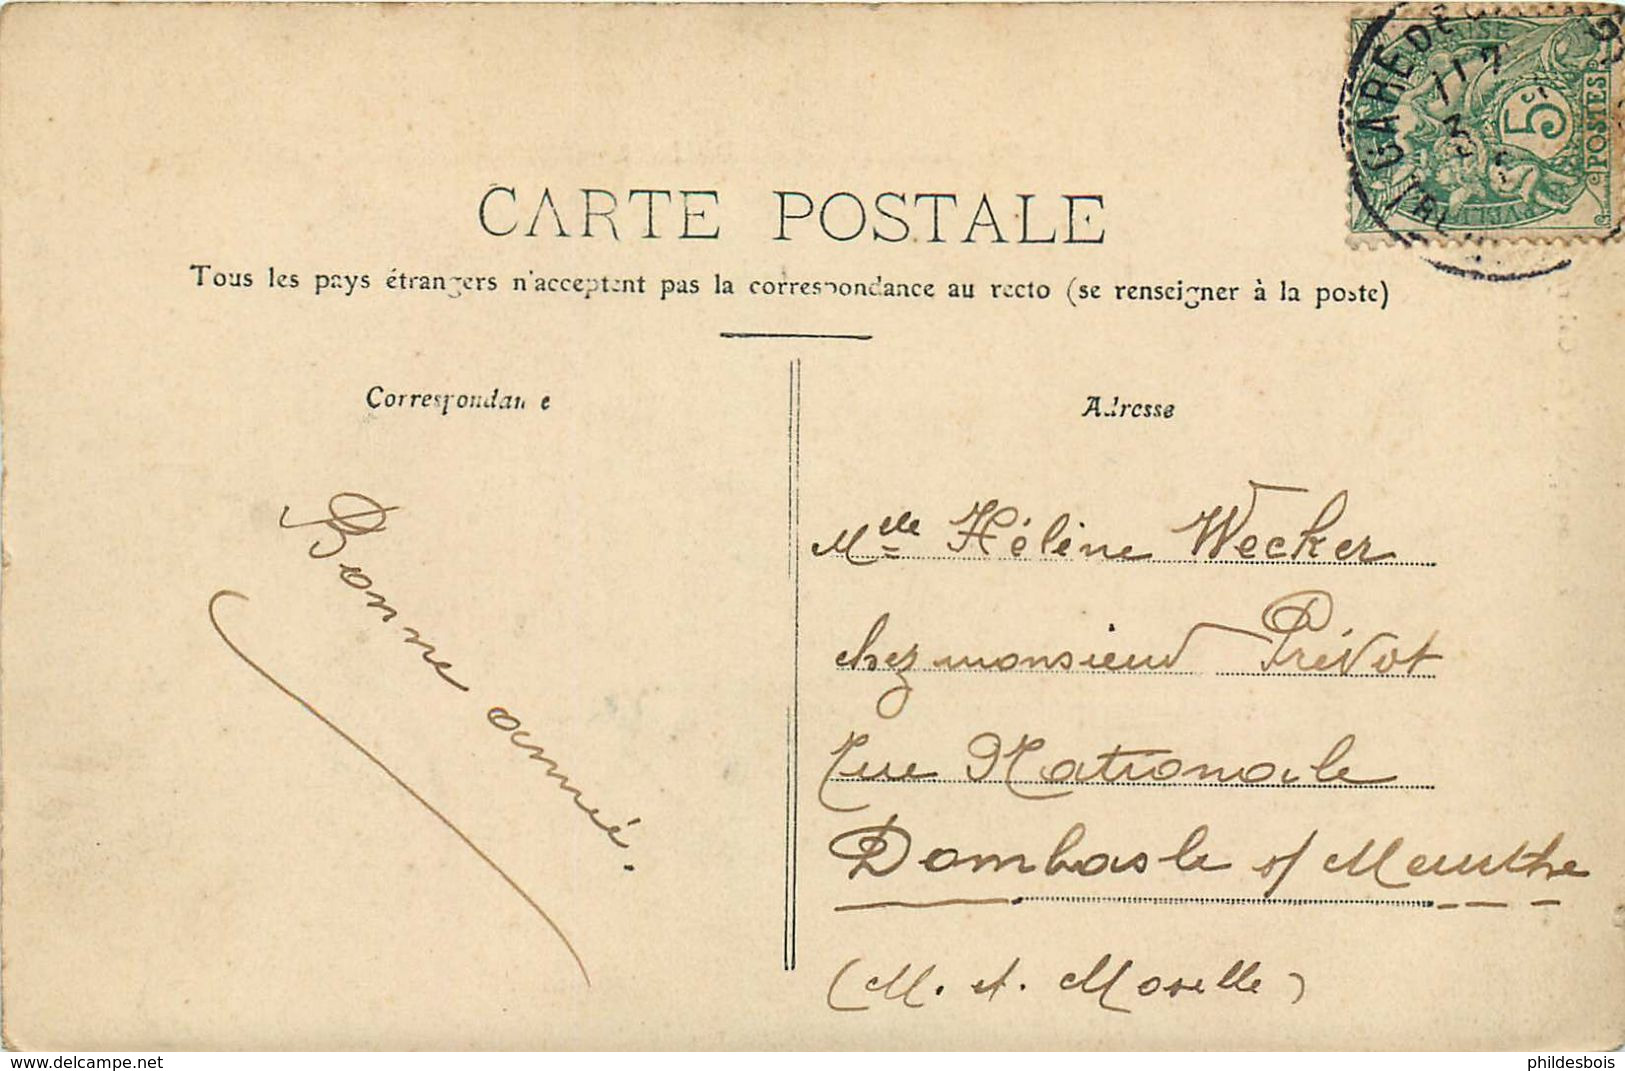 CARTE POSTALE
Tous les pays étrangers n'acceptent pas la correspondance au recto (se renseigner à la poste)
Correspondance
Adresse
Bonne année.
Mlle Hélène Wecker
chez monsieur Prévot
rue Nationale
Dombasle s/ Meurthe
(M. et. Moselle)
GARE DE
5c
POSTES
www.delcampe.net
phildesbois